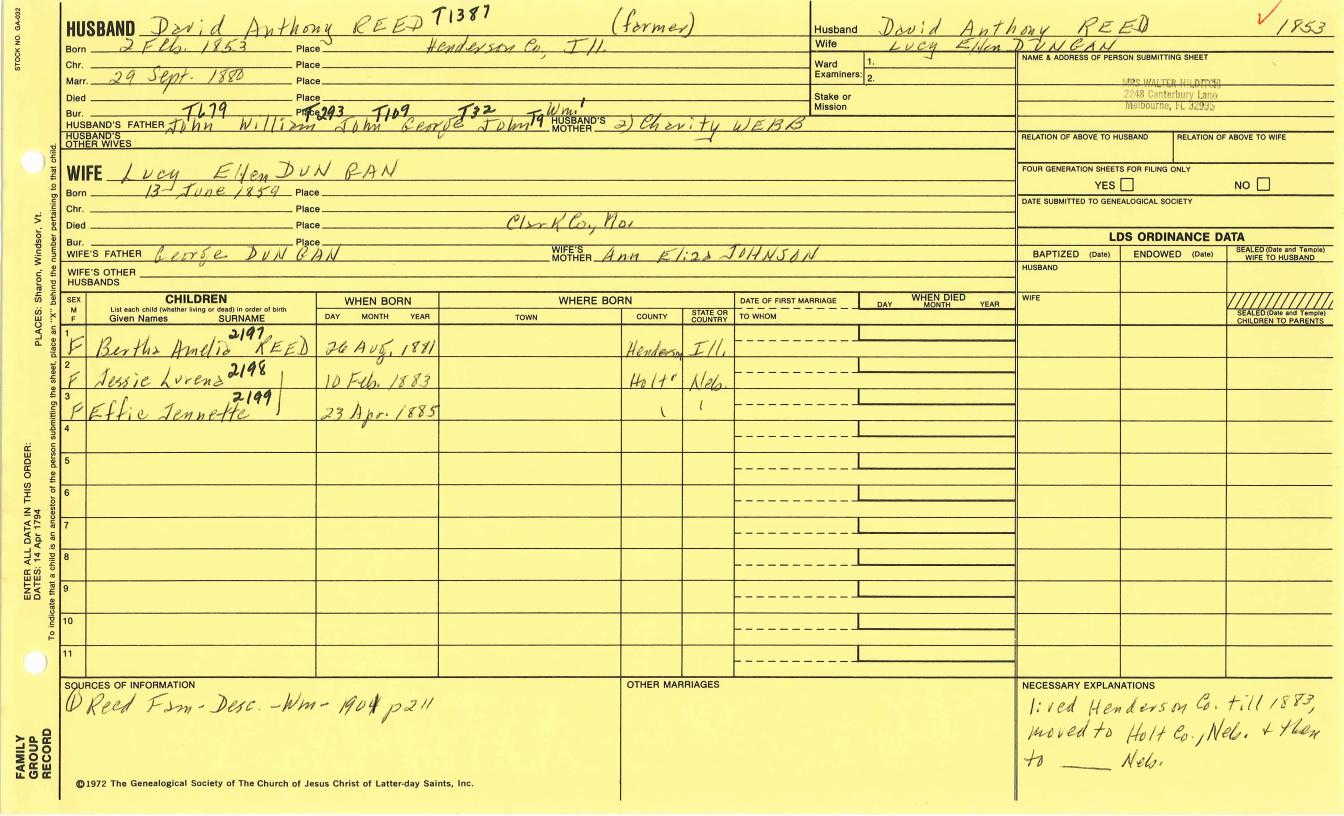 STOCK NO. GA-032
HUSBAND David Anthony REED T1387 (former)
Born 2 Feb. 1853 Place Henderson Co, Ill.
Chr. Place
Marr. 29 Sept. 1880 Place
Died Place
Bur. Place
T679 T293 T109 T32 T9 Wm'
HUSBAND'S FATHER John William John George John HUSBAND'S MOTHER 2) Charity WEBB
HUSBAND'S OTHER WIVES
WIFE Lucy Ellen DUNGAN
Born 13 June 1859 Place
Chr. Place
Died Place Clark Co., Mo.
Bur. Place
WIFE'S FATHER George DUNGAN WIFE'S MOTHER Ann Eliza JOHNSON
WIFE'S OTHER HUSBANDS
Husband David Anthony REED 1853
Wife Lucy Ellen DUNGAN
Ward Examiners: 1.
2.
Stake or Mission
NAME & ADDRESS OF PERSON SUBMITTING SHEET
MRS WALTER HILDITCH
2248 Canterbury Lane
Melbourne, FL 32935
RELATION OF ABOVE TO HUSBAND RELATION OF ABOVE TO WIFE
FOUR GENERATION SHEETS FOR FILING ONLY
YES NO
DATE SUBMITTED TO GENEALOGICAL SOCIETY
LDS ORDINANCE DATA
BAPTIZED (Date) ENDOWED (Date) SEALED (Date and Temple) WIFE TO HUSBAND
HUSBAND
WIFE
SEALED (Date and Temple) CHILDREN TO PARENTS
SEX M F
CHILDREN
List each child (whether living or dead) in order of birth
Given Names SURNAME
WHEN BORN
DAY MONTH YEAR
WHERE BORN
TOWN COUNTY STATE OR COUNTRY
DATE OF FIRST MARRIAGE
TO WHOM
WHEN DIED
DAY MONTH YEAR
1 F Bertha Amelia REED 2197 26 Aug. 1881 Henderson Ill.
2 F Jessie Lurena 2198 10 Feb. 1883 Holt Neb.
3 F Effie Jennette 2199 23 Apr. 1885
4
5
6
7
8
9
10
11
SOURCES OF INFORMATION
① Reed Fam- Desc. -Wm- 1904 p211
OTHER MARRIAGES
NECESSARY EXPLANATIONS
lived Henderson Co. till 1883,
moved to Holt Co., Neb. + then
to ____ Neb.
©1972 The Genealogical Society of The Church of Jesus Christ of Latter-day Saints, Inc.
FAMILY GROUP RECORD
ENTER ALL DATA IN THIS ORDER:
DATES: 14 Apr 1794
PLACES: Sharon, Windsor, Vt.
To indicate that a child is an ancestor of the person submitting the sheet, place an "X" behind the number pertaining to that child.